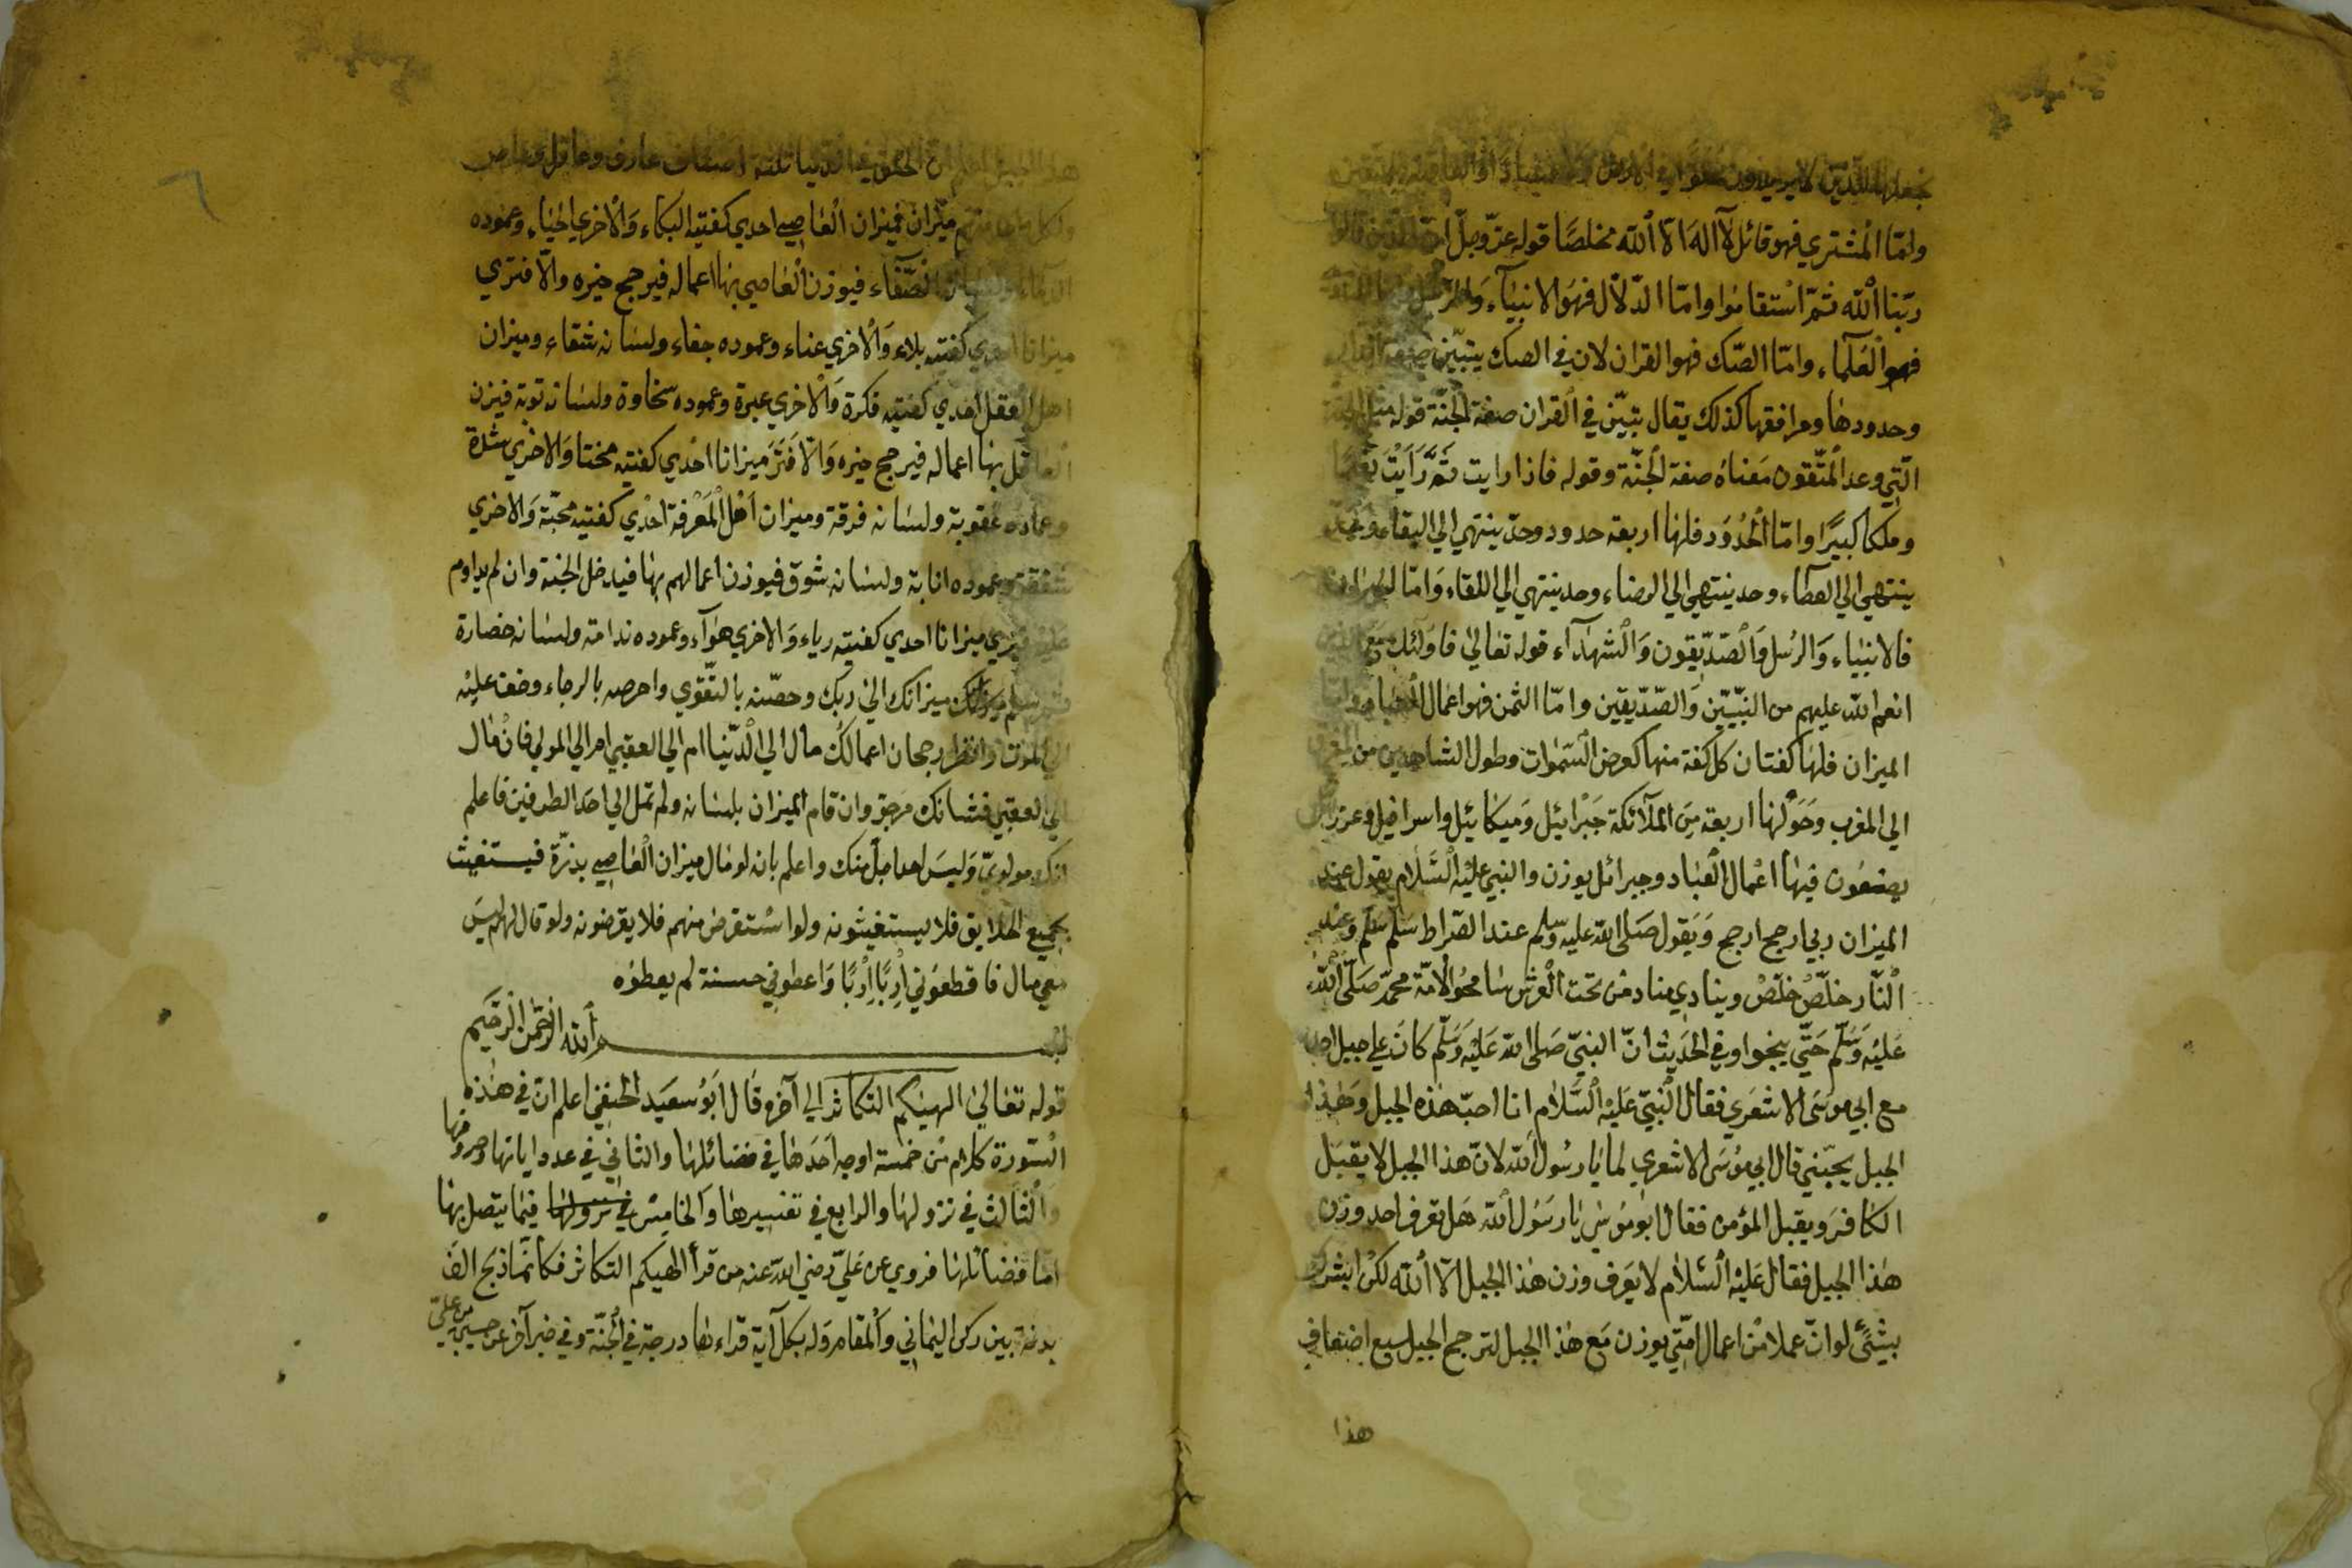 نجعلها للذين لا يريدون علوا في الارض ولا فسادا والعاقبة للمتقين
وامّا المشتري فهو قائل لآ اله الا الله مخلصًا قوله عزّ وجلّ انّ الذين قالوا
ربّنا الله ثمّ استقاموا وامّا الدّلّال فهو الانبيآء والرسل
فهو العلمآء وامّا الصّك فهو القران لان في الصك يتبيّن صفة
وحدودها ومرافقها كذلك يقال يتبيّن في القران صفة الجنّة قوله مثل الجنة
الّتي وعد المتّقون معناه صفة الجنّة وقوله فاذا رايت ثمّ رَاَيْتَ نعيمًا
وملكا كبيرًا وامّا الحُدُوَد فلها اربعة حدود وحدّ ينتهي الي البقاء وحدّ
ينتهي الي العطآء وحد ينتهي الي الرضاء وحد ينتهي الي اللقاء وَامّا الجيران
فالانبياء وَالرسل وَالصّدّيقون وَالشهدآء قوله تعالي فاولئك مع الذين
انعم الله عليهم من النبّيين وَالصّدّيقين وامّا الثمن فهو اعمال وامّا
الميزان فلها كفتان كل كفة منها كعرض السّموات وطول الشاهدين من المشرق
الي المغرب وحَوْلها اربعة من الملآئكة جَبْرائيل وَميكائيل واسرافيل وعزرائيل
يضعُون فيها اعْمال العباد وجبرائل يوزن والنبي عليْه السَّلام يقول عند
الميزان ربي ارجح ارجح وَيقول صَلي الله عليه وسلّم عند الصّراط سَلّم سَلّم وعند
النّار خلّصْ خلّصْ وينادي مناد من تحت العَرْش سامحُوا الامّة محمّد صَلّي الله
عَليْه وَسَلّم حَتّي ينجوا وفي الحَديث انّ النبيّ صَلي الله عَليْه وَسَلّم كانَ علي جبل
مع ابي موسَي الاشعَري فقال النّبيّ عَليْه السَّلام انا احبّ هذه الجبل وَهٰذا
الجبل يحبّني قال ابي موُسَي الاشعري لما يا رسُول الله لانّ هذا الجبل لا يقبَل
الكافرَ ويقبل المؤمن فقال ابو موُسَي يا رسَوُل الله هَل يعَرف احد وزن
هٰذا الجبل فقال عَليْه السَّلام لا يعَرف وزن هٰذا الجبل الّا الله لكن ابشرك
بشئ لو انّ عملا من اعمال امّتي يوزن مَع هٰذا الجبل لترجح الجبل سبع اضعاف
هذا
هذا الجبل اعلم ان الخلق في الدنيا ثلثة اصناف عارف وعاقل وعاص
ولكل منهم ميزان فميزان العَاصي احدي كفتيه البكاء وَالاخري الحياء وعموده
فيوزن العَاصي بها اعماله فيرجح خيره والّا فتري
ميزانا احدي كفتيه بلاء وَالاخري عناء وعموده جفاء ولسانه شقاء وميزان
اهل العقل احدي كفتيه فكرة وَالاخري عبرة وعموده سخاوة ولسانه توبة فيزن
العاقل بها اعماله فيرجح خيره وَالّا فَتَرَ ميزانا احدي كفتيه محنتا وَالاخري شدة
وعماده عُقوبة ولسانه فرقة وميزان اَهْل المَعْرفة احدْي كفتيه محبّة وَالاخري
شفقة وعموده انابة ولسانه شوق فيوزن اعمالهم بها فيدخل الجنة وان لم يداوم
عليه فيري ميزانا احدي كفتيه رياء وَالاخري هوآء وعموده ندامة ولسانه خصارة
ميزانك الي ربك وحصّنه بالتّقوي واحرصه بالرجاء وضعَ عليْه
الي الموت وانظر رجحان اعمالك مال الي الدّنيا ام الي العقبي ام الي المولي فانْ مال
الي العقبي فشانك مَرجوّ وان قام الميزان بلسانه ولم تمل الي احَد الطرفين فاعلم
انك مولويّ وَليسَ احد منك واعلم بانه لو مال ميزان العَاصي بذرّة فيستغيث
بجميع الخلايق فلا يستغيثونه ولو اسْتقرض منهم فلا يقرضونه ولو قال لهم ليسَ
معي مال فاقطعوُني اِرْبًا اِرْبًا وَاعطوني حسنة لم يعطوُه
بسم الله الرّحمٰن الرّحيم
قوله تعَالي الهيكم التكاثر الي آخره قَال اَبوُ سعيَد الحنفي اعلم انّ في هٰذه
السّورة كلام من خمسة اوجه اَحَدها في فضائلها والثاني في عدد اياتها وحروفها
وَالثالث في نزولها والرابع في تفسيرها وَالخامس في نزولها فيما يتصل بها
امّا فضائلها فروي عن عَليّ رضي الله عنه من قرأ الهيكم التكاثر فكانّما ذبح الف
بدنة بين ركن اليماني والمقام وله بكل آية قراءها درجة في الجنّة وفي خبر آخر عن حسين بن عليّ